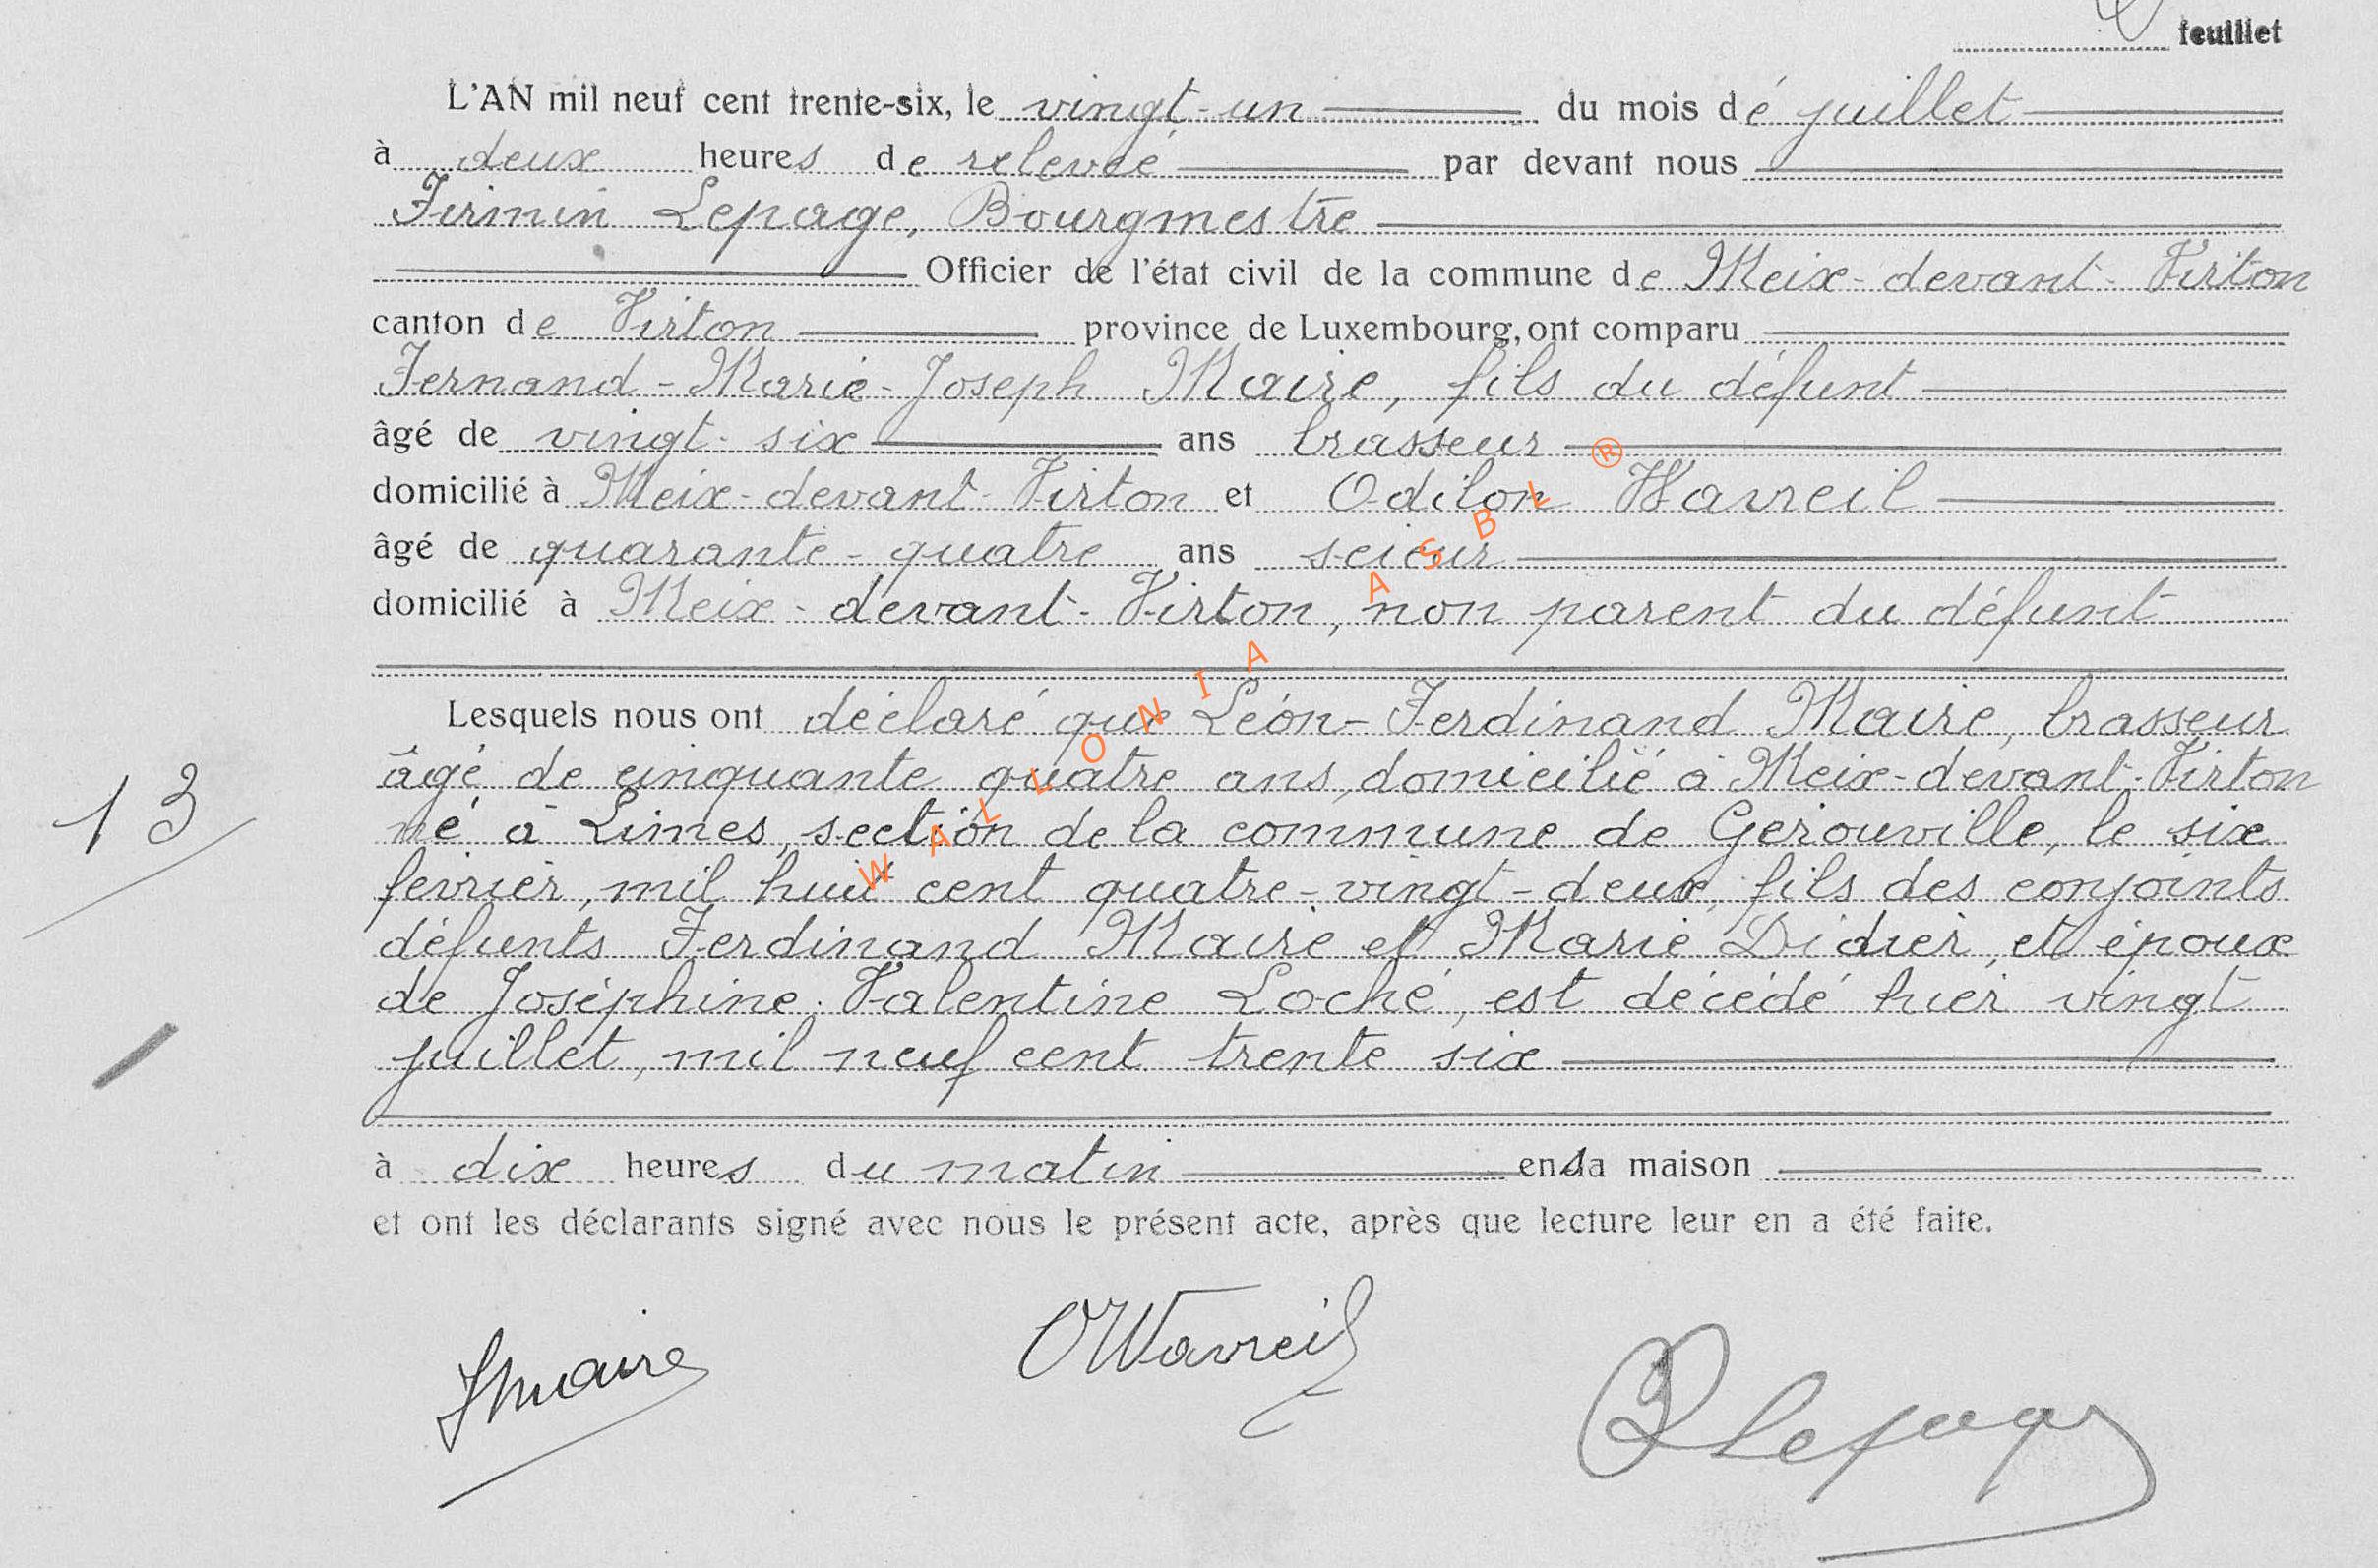 feuillet
L'AN mil neuf cent trente-six, le vingt-un du mois de juillet
à deux heures de relevée par devant nous
Firmin Lepage, Bourgmestre
Officier de l'état civil de la commune de Meix-devant-Virton
canton de Virton province de Luxembourg, ont comparu
Fernand-Marie-Joseph Maire, fils du défunt
âgé de vingt-six ans brasseur
domicilié à Meix-devant-Virton et Odilon Wavreil
âgé de quarante-quatre ans scieur
domicilié à Meix-devant-Virton, non parent du défunt
Lesquels nous ont déclaré que Léon-Ferdinand Maire, brasseur
âgé de cinquante quatre ans, domicilié à Meix-devant-Virton
13 né à Limes, section de la commune de Gerouville, le six
février, mil huit cent quatre-vingt-deux, fils des conjoints
défunts Ferdinand Maire et Marie Didier, et époux
de Joséphine-Valentine Loché, est décédé hier vingt
juillet, mil neuf cent trente six
à dix heures du matin en sa maison
et ont les déclarants signé avec nous le présent acte, après que lecture leur en a été faite.
FMaire OWavreil Lepage
WALLONIA ASBL ®